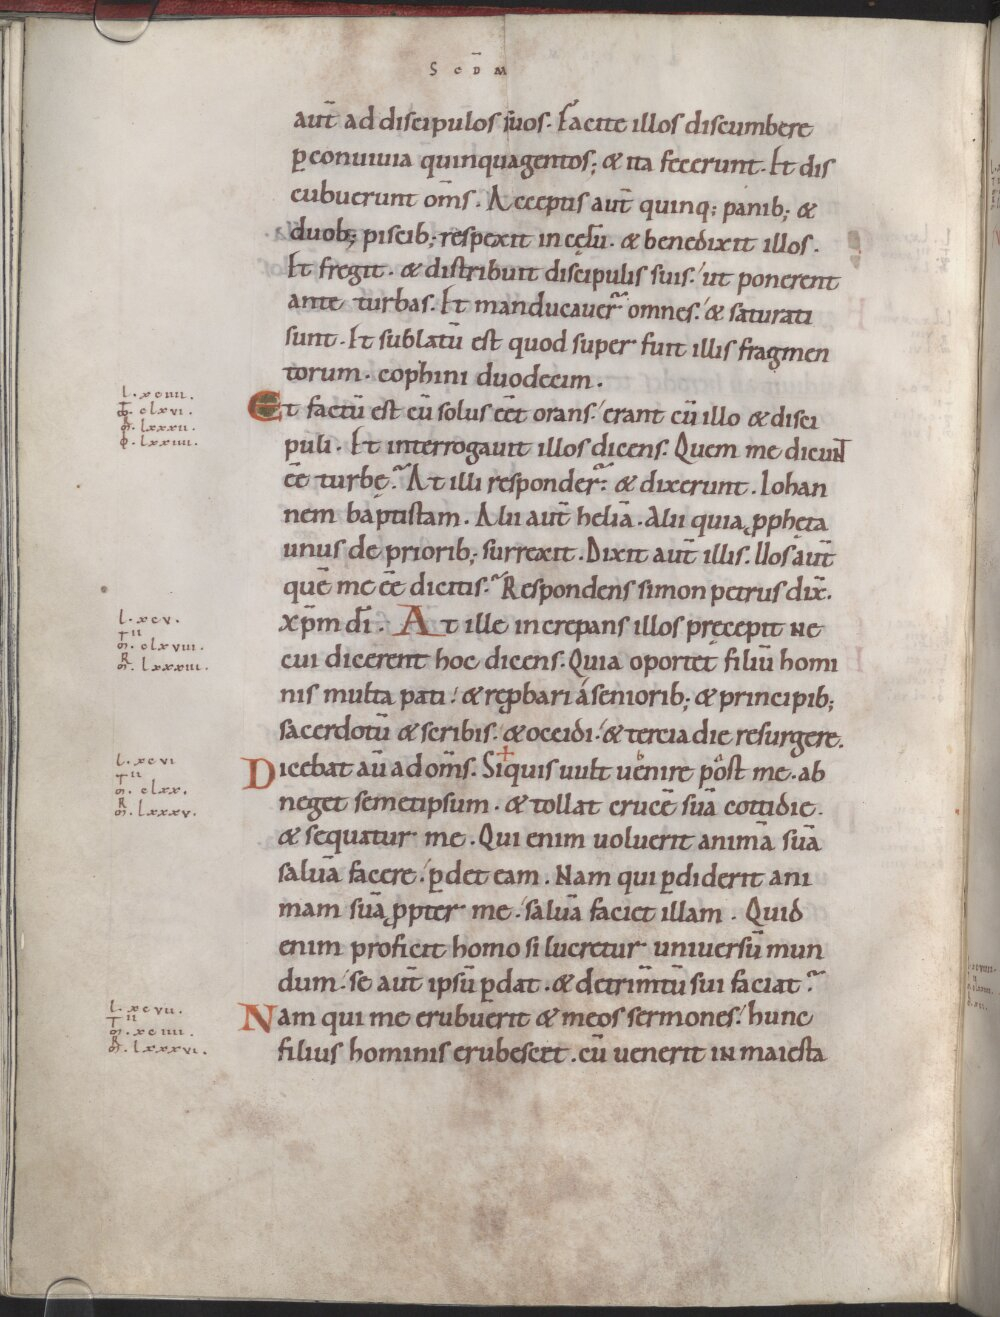 SCD̄M
aut̄ ad discipulos suos. Facite illos discumbere
ꝑconuiuia quinquagenos; & ita fecerunt. Et dis
cubuerunt om̄s. Acceptis aut̄ quinq; panib; &
duob; piscib; respexit in cęlū. & benedixit illos.
Et fregit. & distribuit discipulis suis. ut ponerent
ante turbas. Et manducauer̄ omnes. & saturati
sunt. Et sublatū est quod superfuit illis fragmen
torum. cophini duodecim.
l. xciiii.
clxvi.
lxxxii.
lxxiiii.
Et factū est cū solus eēt orans. erant cū illo & disci
puli. Et interrogauit illos dicens. Quem me dicunt
eē turbę. At illi responder̄. & dixerunt. Iohan
nem baptistam. Alii aut̄ heliā. Alii quia ꝓphęta
unus de priorib; surrexit. Dixit aut̄ illis. Uos aut̄
quē me eē dicitis. Respondens simon petrus dix̄.
xp̄m dī. At ille increpans illos pręcepit ne
l. xcv.
clxviii.
lxxxiii.
cui dicerent hoc dicens. Quia oportet filiū homi
nis multa pati. & reꝓbari á seniorib; & principib;
sacerdotū & scribis. & occidi. & tercia die resurgere.
l. xcvi
clxx.
lxxxv.
Dicebat aū ad om̄s. Siquis uult uenire post me. ab
neget semetipsum. & tollat crucē suā cottidie.
& sequatur me. Qui enim uoluerit animā suā
saluā facere. ꝑdet eam. Nam qui ꝑdiderit ani
mam suā ꝓpter me. saluā faciet illam. Quid
enim proficit homo si lucretur uniuersū mun
dum. se aut̄ ipsū ꝑdat. & detrim̄tū sui faciat.
l. xcvii.
xciiii.
lxxxvi.
Nam qui me erubuerit & meos sermones. hunc
filius hominis erubescet. cū uenerit in maiesta